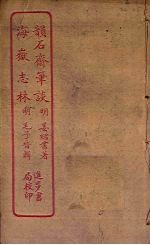 韻石齋筆談 明姜紹書著
海嶽志林 明毛子晉輯
進步書局校印